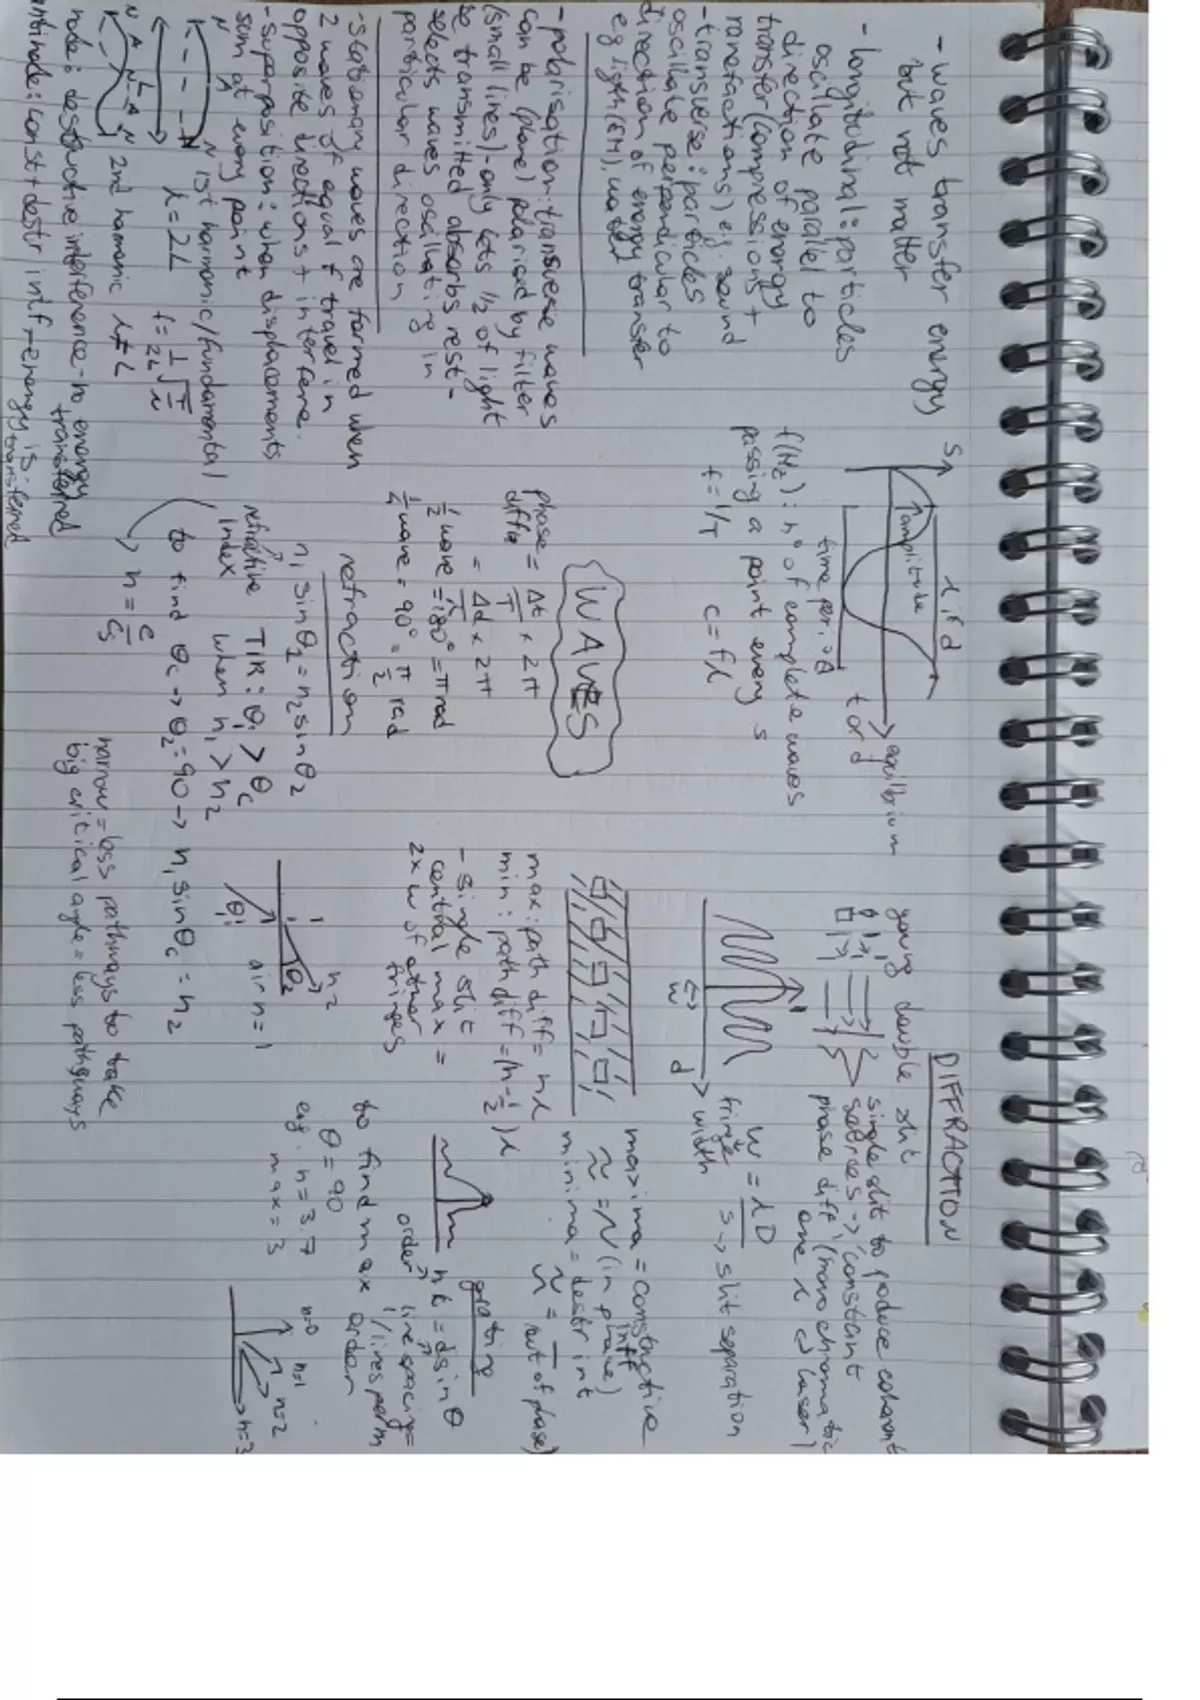 - waves transfer energy
but not matter
- longitudinal: particles
oscillate parallel to
direction of energy
transfer (compressions +
rarefactions) eg. sound
- transverse: particles
oscillate perpendicular to
direction of energy transfer
eg light (EM), water
- polarisation: transverse waves
can be (plane) polarised by filter
(small lines) - only lets 1/2 of light
be transmitted absorbs rest -
selects waves oscillating in
particular direction
- stationary waves are formed when
2 waves of equal f travel in
opposite directions + interfere.
- superposition: when displacements
sum at every point
N A N 1st harmonic/fundamental
λ = 2L f = 1/2L √T/μ
L
N A N A N 2nd harmonic λ = L
node: destructive interference - no energy
transferred
antinode: const + destr intf - energy is
transferred
S
λ if d
amplitude
equilibrium
t or d
time period
f (Hz): nº of complete waves
passing a point every s
f = 1/T c = fλ
WAVES
phase = Δt/T × 2π
diff
= Δd/λ × 2π
1/2 wave = 180° = π rad
1/4 wave = 90° = π/2 rad
refraction
n₁ sinθ₁ = n₂ sinθ₂
refractive index
TIR: θi > θc
when n₁ > n₂
to find θc → θ₂ = 90 → n₁ sinθc = n₂
n = c/cs
narrow = less pathways to take
big critical angle = less pathways
n=2
θ₂
θi
air n=1
DIFFRACTION
young double slit
single slit to produce coherent
sources → constant
phase diff (monochromatic
one λ ↔ laser)
w = λD/s → slit separation
fringe
width
w
d
maxima = constructive
intf
(in phase)
minima = destr int
(out of phase)
max: path diff = nλ
min: path diff = (n - 1/2)λ
- single slit
central max =
2x w of other
fringes
grating
nλ = dsinθ
order
line spacing =
1/lines per m
to find max order
θ = 90
e.g. n = 3.7
max = 3
n=0 n=1 n=2 n=3